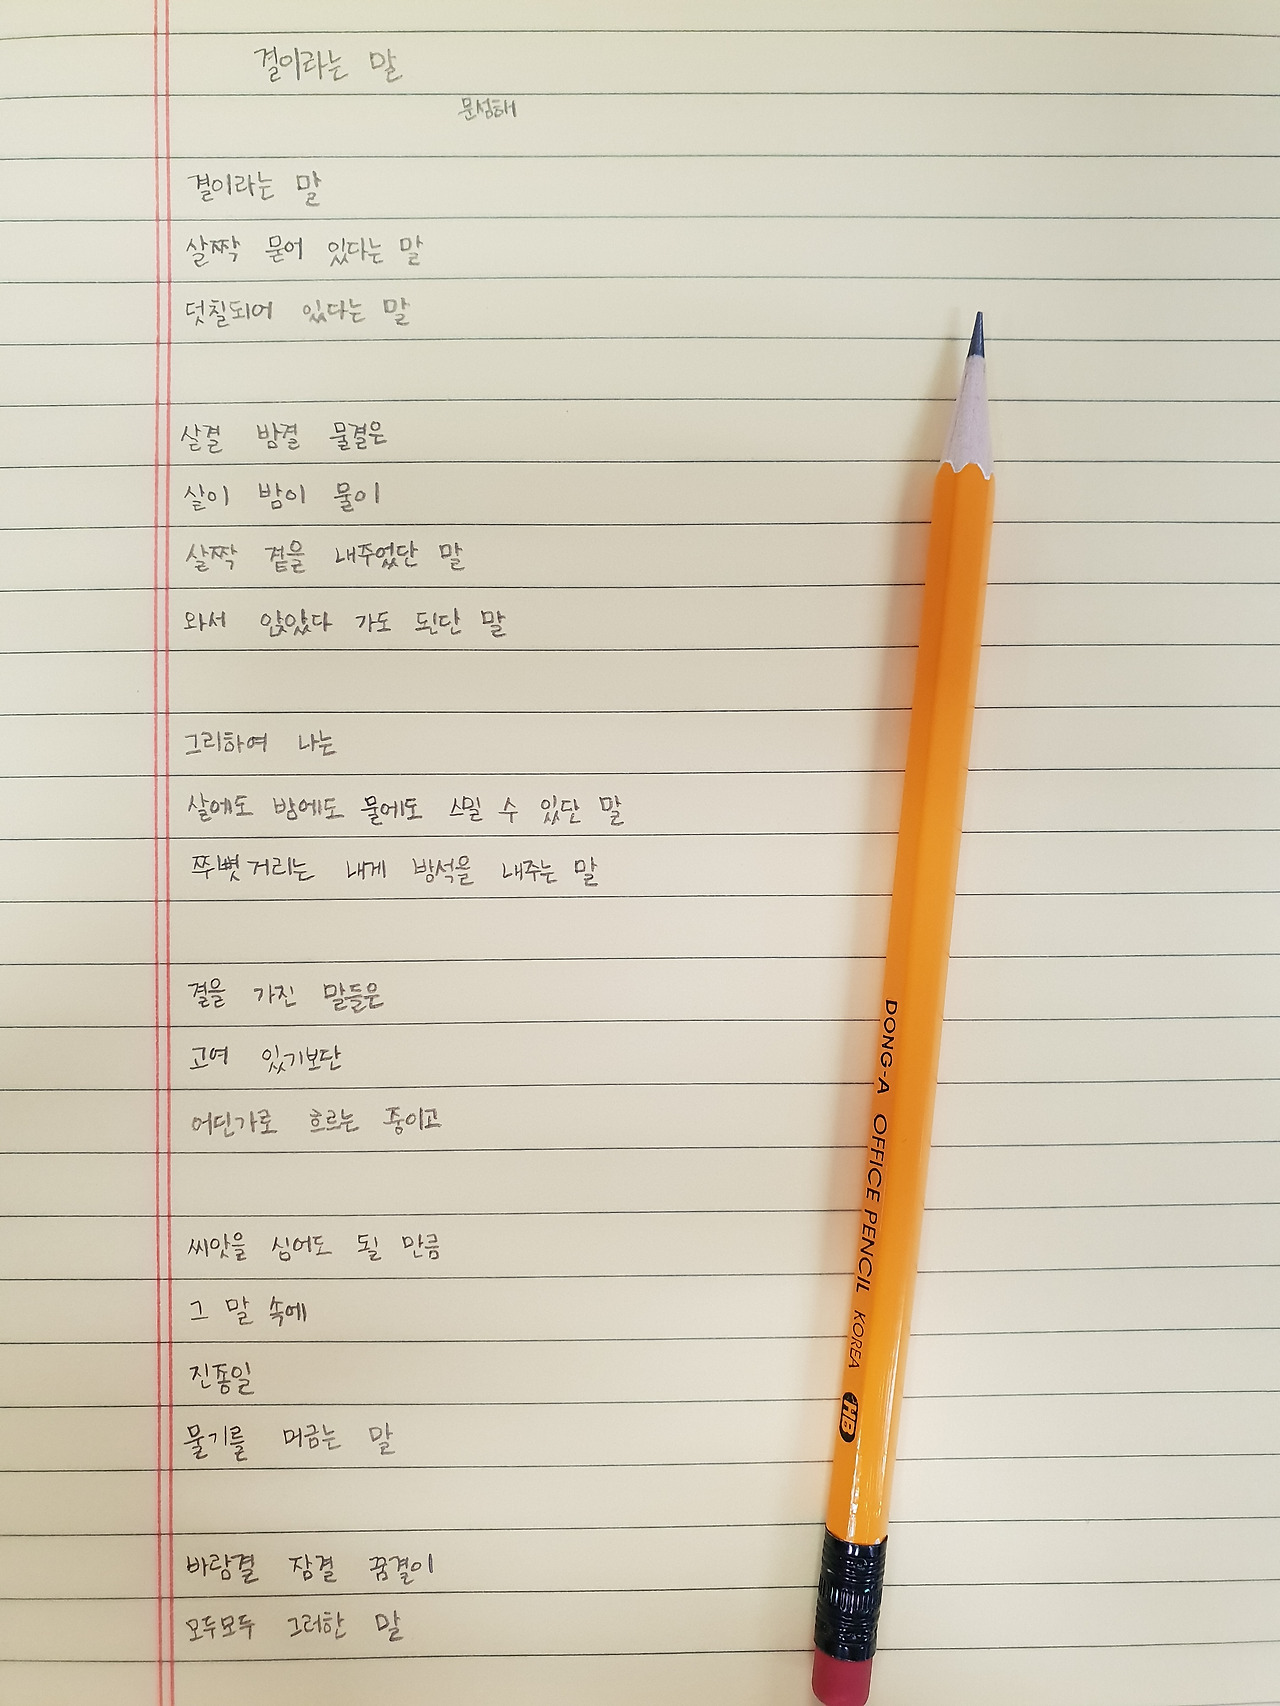 결이라는 말
문성해
결이라는 말
살짝 묻어 있다는 말
덧칠되어 있다는 말
살결 밤결 물결은
살이 밤이 물이
살짝 곁을 내주었단 말
와서 앉았다 가도 된단 말
그리하여 나는
살에도 밤에도 물에도 스밀 수 있단 말
쭈뼛거리는 내게 방석을 내주는 말
결을 가진 말들은
고여 있기보단
어딘가로 흐르는 중이고
씨앗을 심어도 될 만큼
그 말 속에
진종일
물기를 머금는 말
바람결 잠결 꿈결이
모두모두 그러한 말
DONG-A OFFICE PENCIL KOREA HB